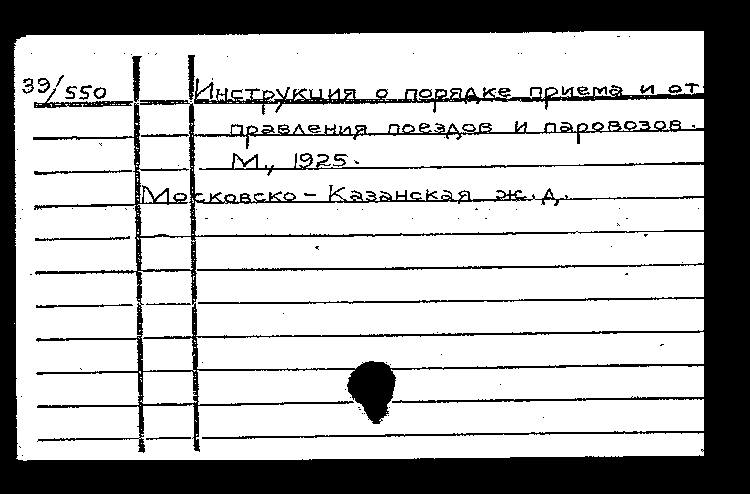 39/550 Инструкция о порядке приема и от
правления поездов и паровозов.
М., 1925.
Московско - Казанская ж. д.